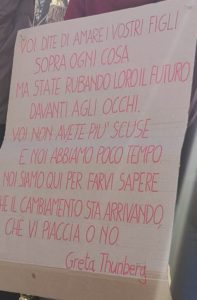 VOI DITE DI AMARE I VOSTRI FIGLI
SOPRA OGNI COSA
MA STATE RUBANDO LORO IL FUTURO
DAVANTI AGLI OCCHI.
VOI NON AVETE PIU' SCUSE
E NOI ABBIAMO POCO TEMPO.
NOI SIAMO QUI PER FARVI SAPERE
HE IL CAMBIAMENTO STA ARRIVANDO,
CHE VI PIACCIA O NO.
Greta Thunberg